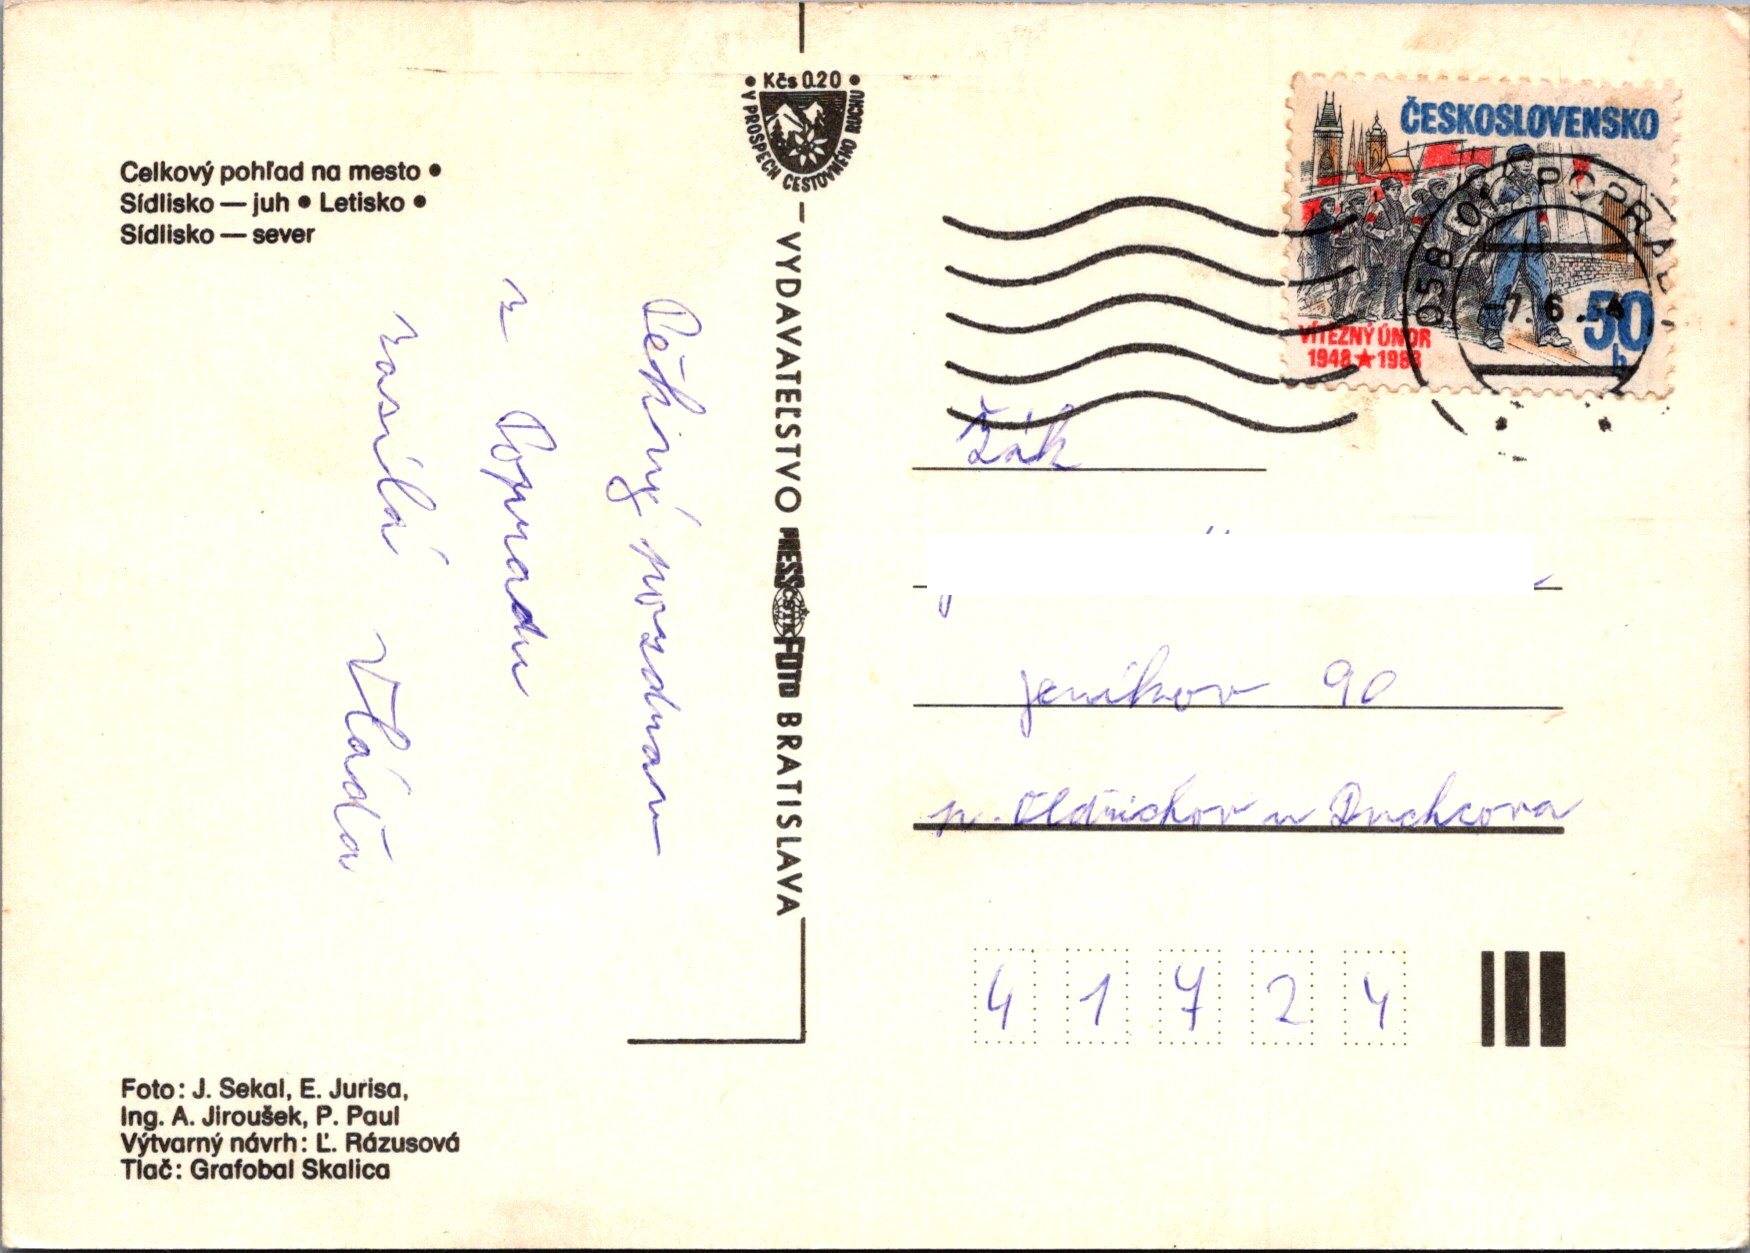 Celkový pohľad na mesto •
Sídlisko — juh • Letisko •
Sídlisko — sever
Pěkný pozdrav
z Popradu
zasílá Vláďa
Foto: J. Sekal, E. Jurisa,
Ing. A. Jiroušek, P. Paul
Výtvarný návrh: Ľ. Rázusová
Tlač: Grafobal Skalica
• Kčs 0.20 •
V PROSPECH CESTOVNÉHO RUCHU
— VYDAVATEĽSTVO PRESSFOTO BRATISLAVA
ČSTK
ČESKOSLOVENSKO
50
h
VÍTĚZNÝ ÚNOR
1948 ★ 1983
058 01 POPRAD
-7.6.
Žák
Jeníkov 90
p. Oldřichov u Duchcova
41724